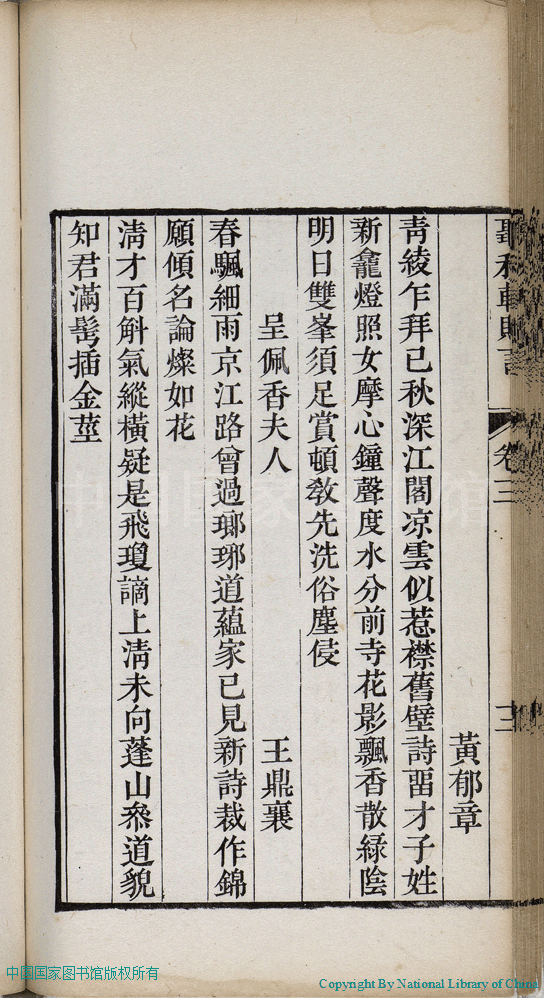 聽秋軒贈言 卷三 三
黃郁章
靑綾乍拜已秋深江閣凉雲似惹襟舊壁詩畱才子姓
新龕燈照女摩心鐘聲度水分前寺花影飄香散綠陰
明日雙峯須足賞頓敎先洗俗塵侵
呈佩香夫人 王鼎襄
春颿細雨京江路曾過瑯琊道蘊家已見新詩裁作錦
願傾名論燦如花
淸才百斛氣縱橫疑是飛瓊謫上淸未向蓬山叅道貌
知君滿髩插金莖
中国国家图书馆
中国国家图书馆版权所有
Copyright By National Library of China